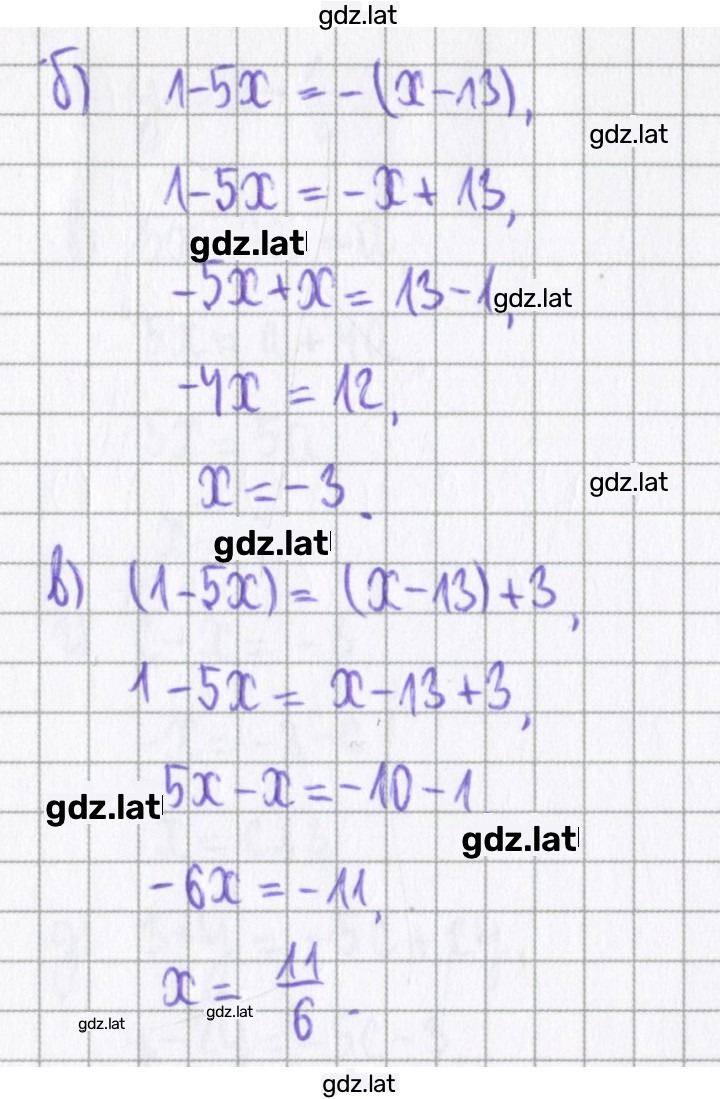 gdz.lat
б) 1-5x = -(x-13),
gdz.lat
1-5x = -x+13,
gdz.lat
-5x+x = 13-1,
gdz.lat
-4x = 12,
x = -3.
gdz.lat
gdz.lat
в) (1-5x) = (x-13)+3,
1-5x = x-13+3,
5x-x = -10-1
gdz.lat
gdz.lat
-6x = -11,
x = 11/6.
gdz.lat
gdz.lat
gdz.lat